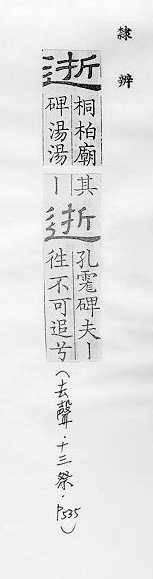 隸辨
逝
桐柏廟
碑湯湯
其
丨
逝
孔碑夫丨
徃不可追兮
(去聲·十三祭·P535)